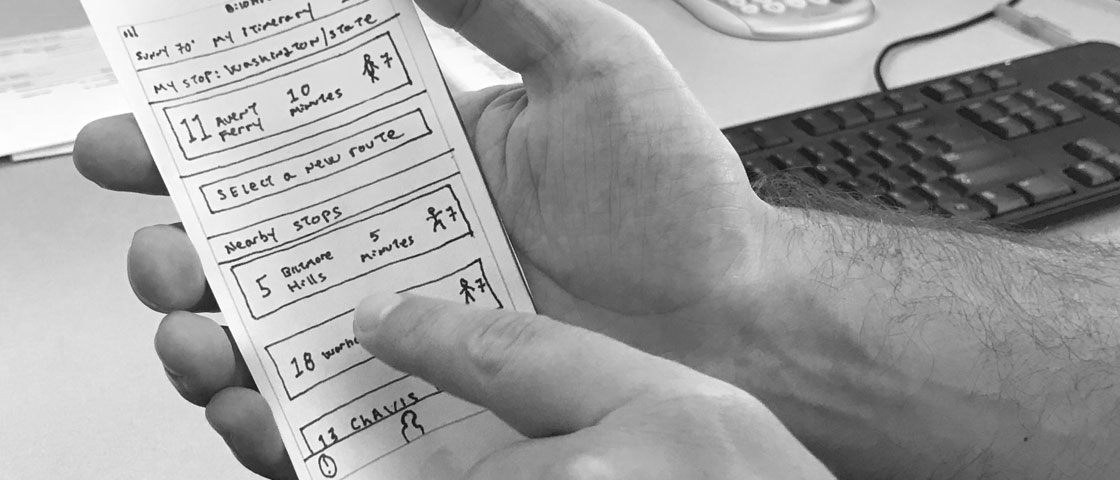 Sunny 70° My Itinerary
My Stop: Washington/State
11 Avent Ferry 10 minutes 7
Select a New Route
Nearby Stops
5 Biltmore Hills 5 minutes 7
18 7
13 Chavis